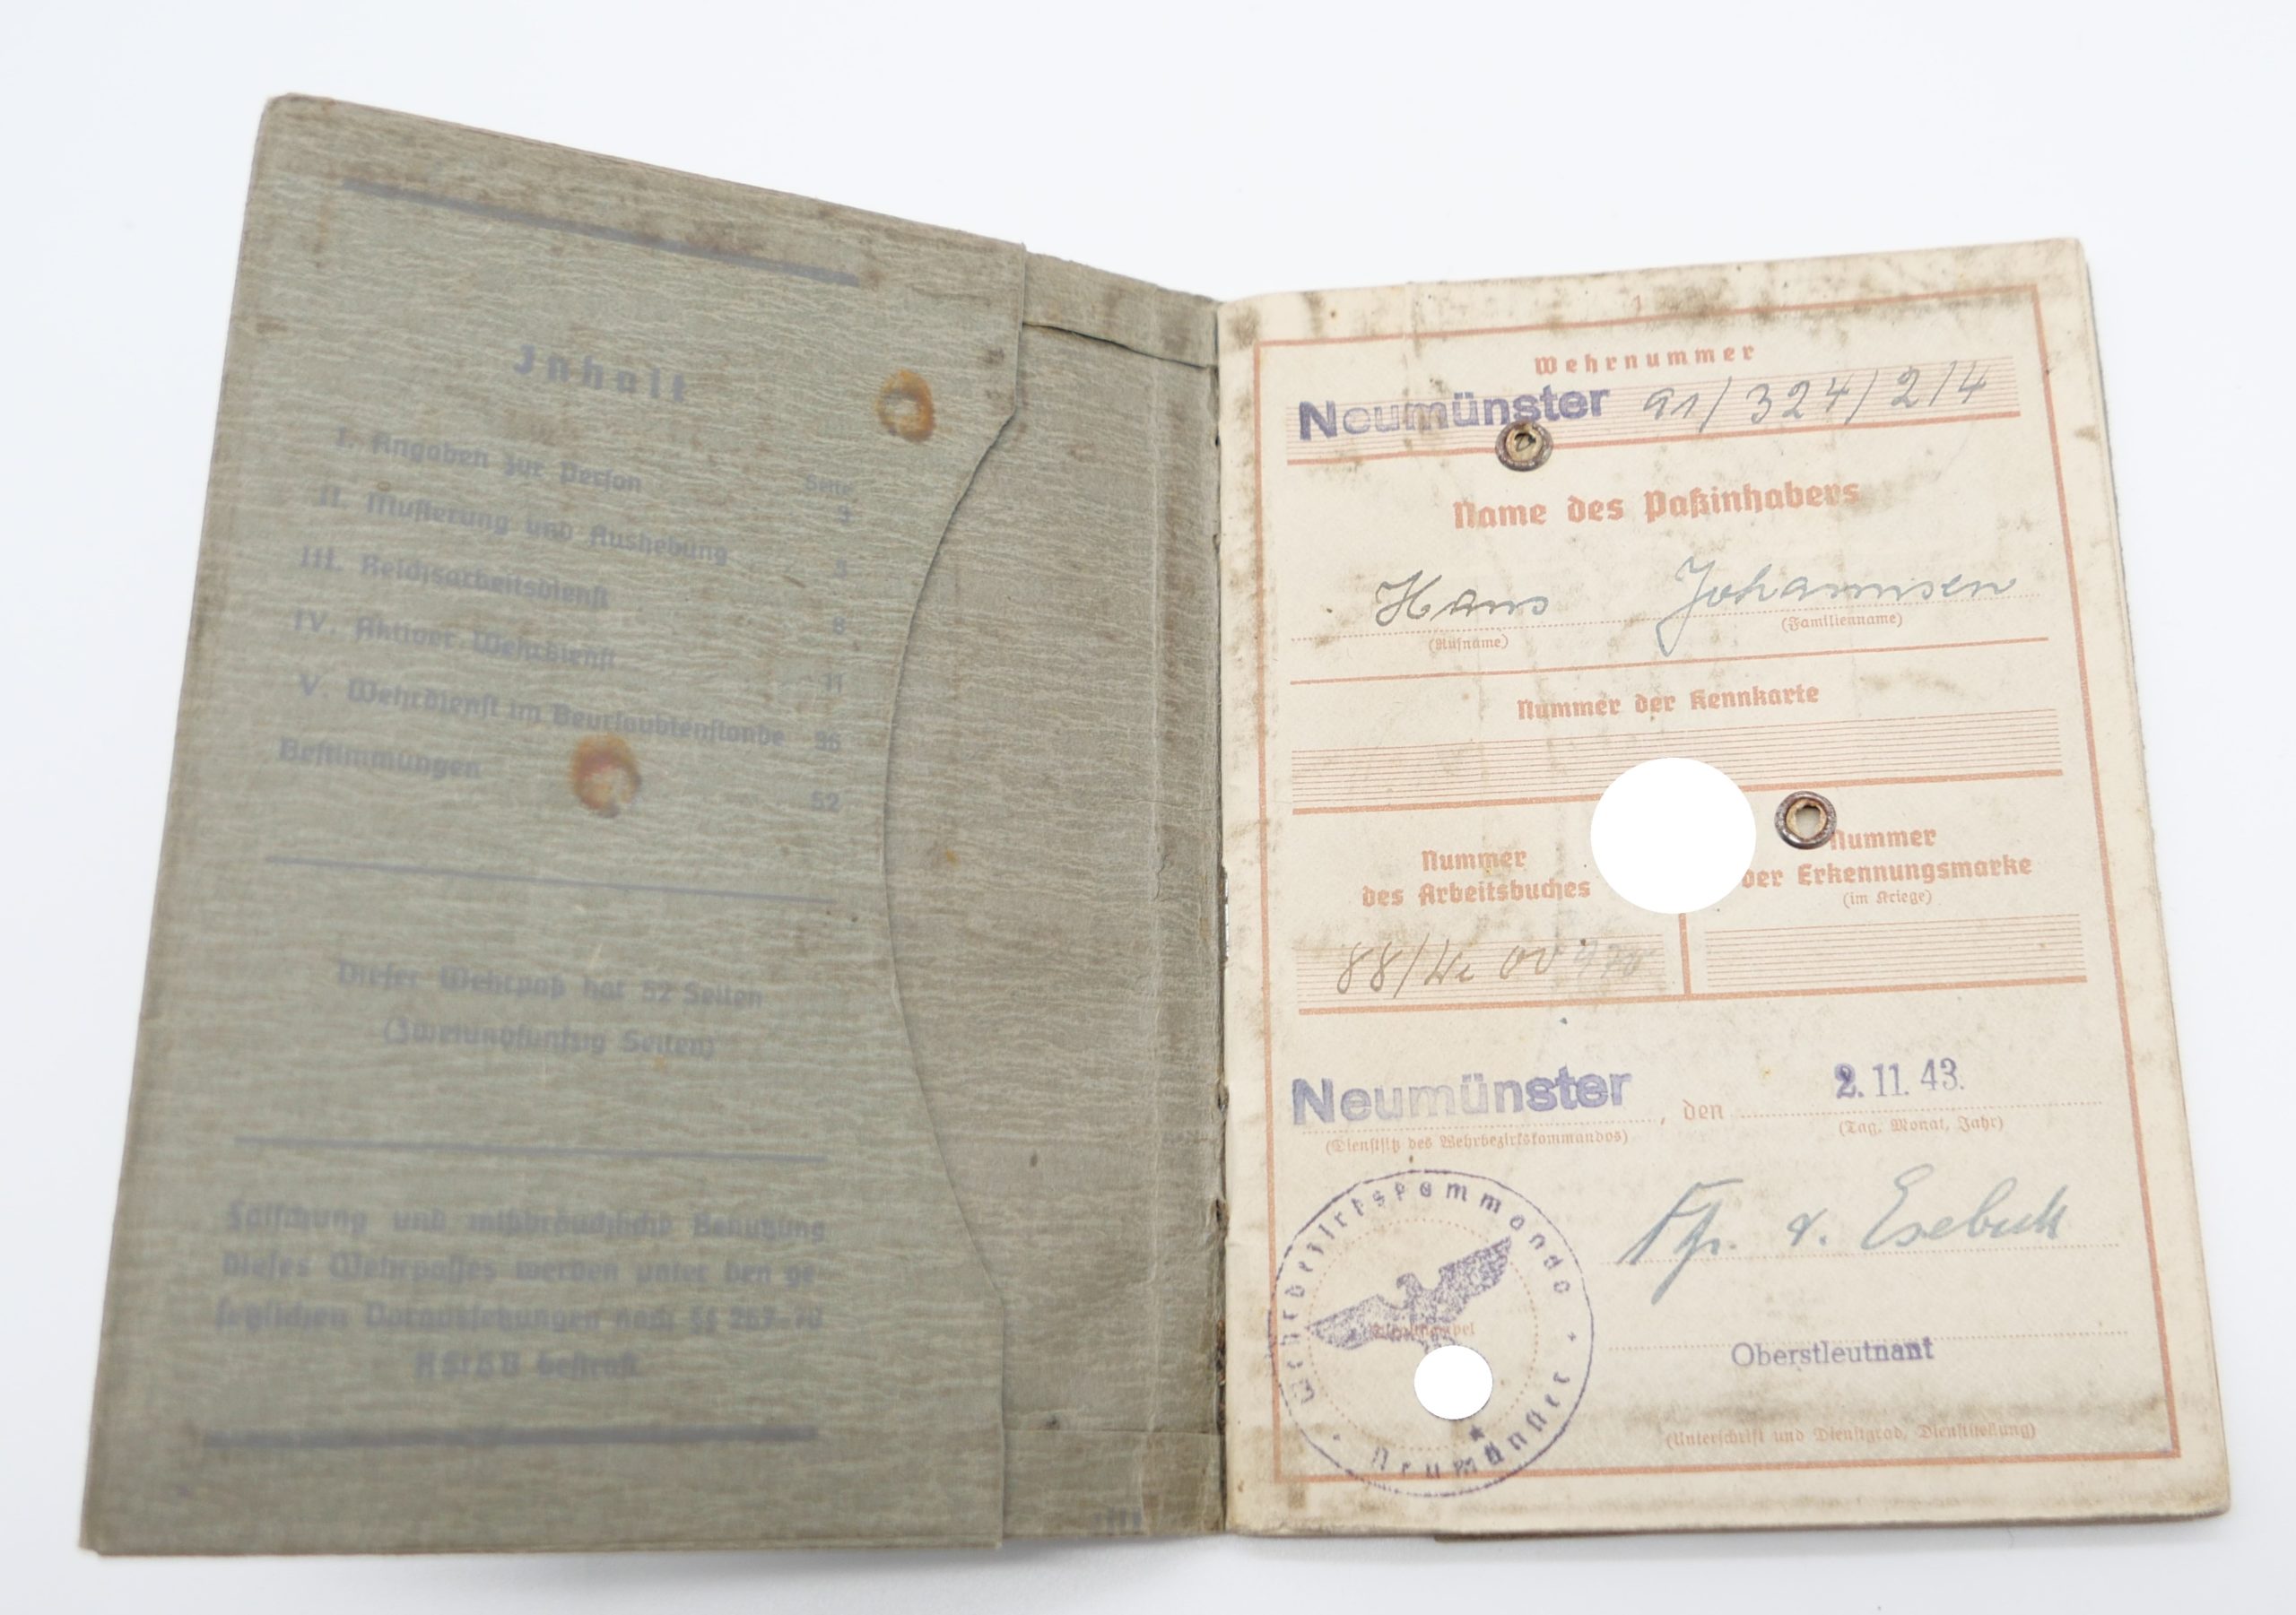 Inhalt
Seite
I. Angaben zur Person 3
II. Musterung und Aushebung 5
III. Reichsarbeitsdienst 8
IV. Aktiver Wehrdienst 11
V. Wehrdienst im Beurlaubtenstande 36
Bestimmungen 52
Dieser Wehrpaß hat 52 Seiten
(Zweiundfünfzig Seiten)
Fälschung und mißbräuchliche Benutzung
dieses Wehrpasses werden unter den ge-
setzlichen Voraussetzungen nach §§ 267-70
RStGB bestraft
1
Wehrnummer
Neumünster 91/324/2/4
Name des Paßinhabers
Hans Johannsen
(Rufname) (Familienname)
Nummer der Kennkarte
Nummer
des Arbeitsbuches
Nummer
der Erkennungsmarke
(im Kriege)
88/We 00
Neumünster, den 2. 11. 43.
(Dienstsitz des Wehrbezirkskommandos) (Tag, Monat, Jahr)
Wehrbezirkskommando
Neumünster
Frhr. v. Esebeck
Oberstleutnant
(Unterschrift und Dienstgrad, Dienststellung)